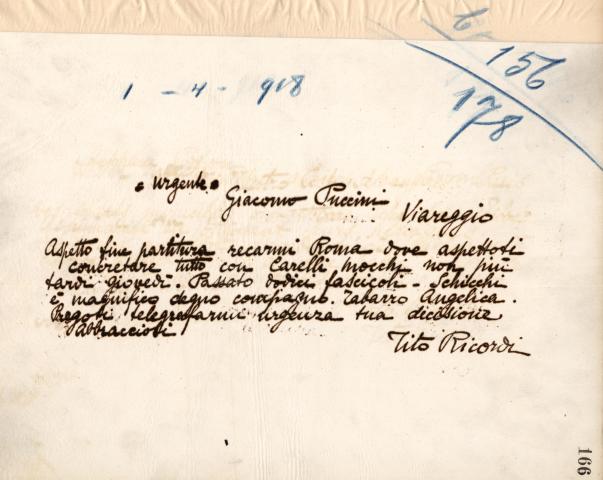 6
156
178
1 - 4 - 918
= urgente =
Giacomo Puccini
Viareggio
Aspetto fine partitura recarmi Roma dove aspettoti
concretare tutto con Carelli mocchi non più
tardi giovedì. Passato dodici fascicoli - Schicchi
è magnifico degno compagno. Tabarro Angelica.
Pregoti telegrafarmi urgenza tua decisione
Abbraccioti
Tito Ricordi
166